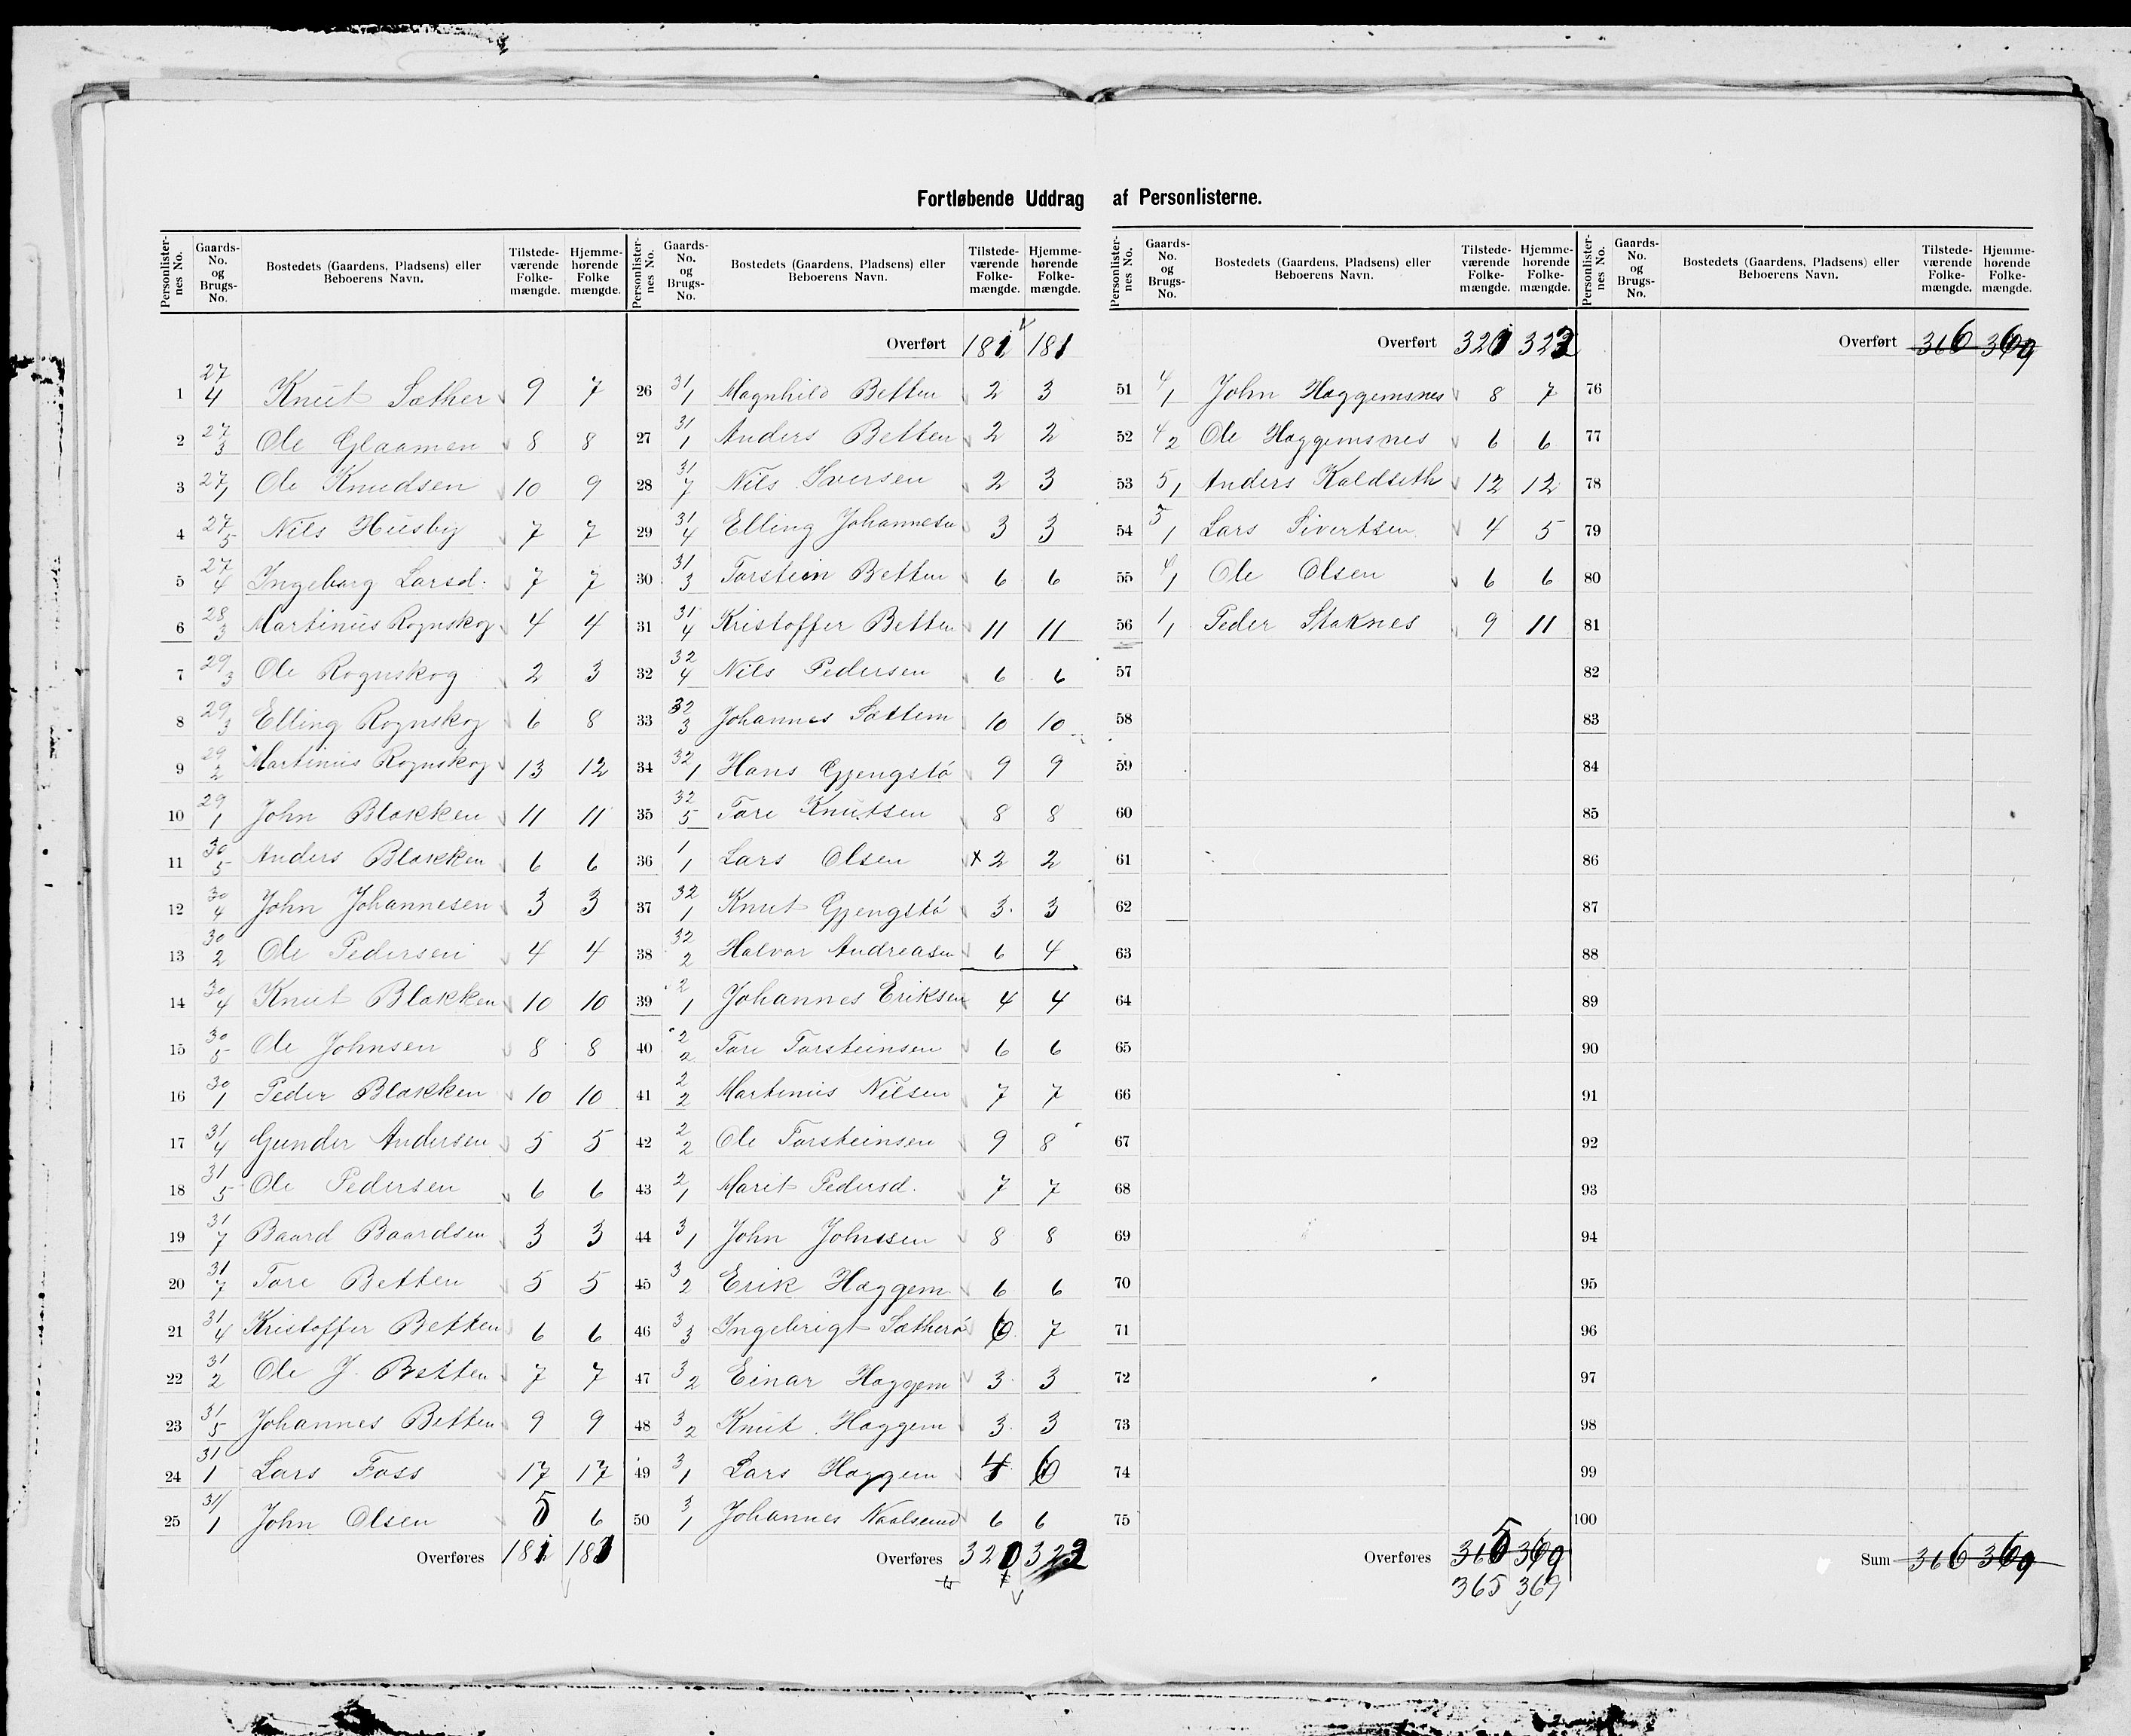 Fortløbende Uddrag af Personlisterne.
Personlisternes No. | Gaards-No. og Brugs-No. | Bostedets (Gaardens, Pladsens) eller Beboerens Navn. | Tilstedeværende Folkemængde. | Hjemmehørende Folkemængde.
1 27/4 Knut Sæther 9 7
2 27/3 Ole Glaamen 8 8
3 27/1 Ole Knudsen 10 9
4 27/5 Nils Husby 7 7
5 27/4 Ingeborg Larsd. 7 7
6 28/3 Martinus Rognskog 4 4
7 29/3 Ole Rognskog 2 3
8 29/3 Elling Rognskog 6 8
9 29/2 Martinus Rognskog 13 12
10 29/1 John Blakken 11 11
11 30/5 Anders Blakken 6 6
12 30/4 John Johannesen 3 3
13 30/2 Ole Pedersen 4 4
14 30/4 Knut Blakken 10 10
15 30/5 Ole Johnsen 8 8
16 30/1 Peder Blakken 10 10
17 31/4 Gunder Andersen 5 5
18 31/5 Ole Pedersen 6 6
19 31/7 Baard Baardsen 3 3
20 31/7 Tore Betten 5 5
21 31/4 Kristoffer Betten 6 6
22 31/2 Ole J. Betten 7 7
23 31/5 Johannes Betten 9 9
24 31/1 Lars Foss 17 17
25 31/1 John Olsen 5 6
Overføres 181 181
Overført 181 181
26 31/1 Magnhild Betten 2 3
27 31/1 Anders Betten 2 2
28 31/7 Nils Iversen 2 3
29 31/4 Elling Johannesn 3 3
30 31/3 Torstein Betten 6 6
31 31/4 Kristoffer Betten 11 11
32 32/4 Nils Pedersen 6 6
33 32/3 Johannes Sættem 10 10
34 32/1 Hans Gjengstø 9 9
35 32/5 Tore Knutsen 8 8
36 1/1 Lars Olsen x 2 2
37 32/1 Knut Gjengstø 3 3
38 32/2 Halvor Andreasen 6 4
39 2/1 Johannes Eriksen 4 4
40 2/2 Tore Torsteinsen 6 6
41 2/2 Martinus Nilsen 7 7
42 2/2 Ole Torsteinsen 9 8
43 2/1 Marit Pedersd. 7 7
44 3/1 John Johnssen 8 8
45 3/2 Erik Haggem 6 6
46 3/3 Ingebrigt Sætherø 6 7
47 3/2 Einar Haggem 3 3
48 3/2 Knut Haggem 3 3
49 3/1 Lars Haggem 4 6
50 3/1 Johannes Naalsund 6 6
Overføres 320 323
Personlisternes No. | Gaards-No. og Brugs-No. | Bostedets (Gaardens, Pladsens) eller Beboerens Navn. | Tilstedeværende Folkemængde. | Hjemmehørende Folkemængde.
Overført 320 323
51 4/1 John Haggemsnes 8 7
52 4/2 Ole Haggemsnes 6 6
53 5/1 Anders Koldseth 12 12
54 5/1 Lars Sivertsen 4 5
55 4/1 Ole Olsen 6 6
56 1/1 Peder Staknes 9 11
57
58
59
60
61
62
63
64
65
66
67
68
69
70
71
72
73
74
75
Overføres 365 369
365 369
Overført 366 369
76
77
78
79
80
81
82
83
84
85
86
87
88
89
90
91
92
93
94
95
96
97
98
99
100
Sum 366 369